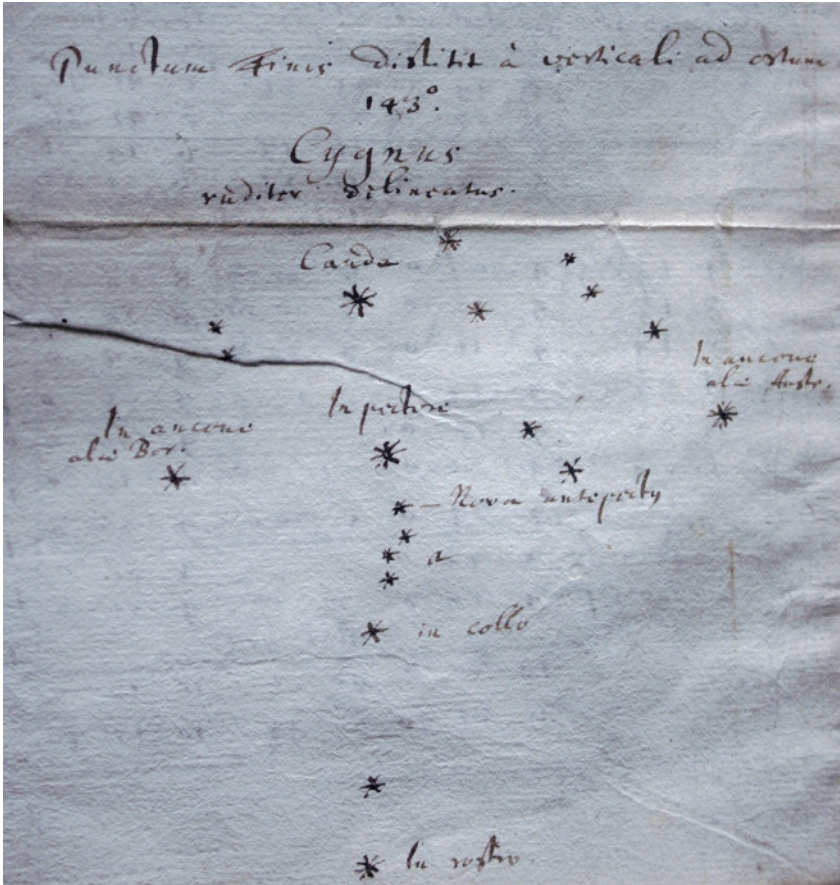 Punctum finis distitit à verticali ad ortum
143°.
Cygnus
ruditer delineatus.
Cauda
In ancone
alæ Austr.
In pectore
In ancone
alæ Bor.
Nova
a
in collo
In rostro.